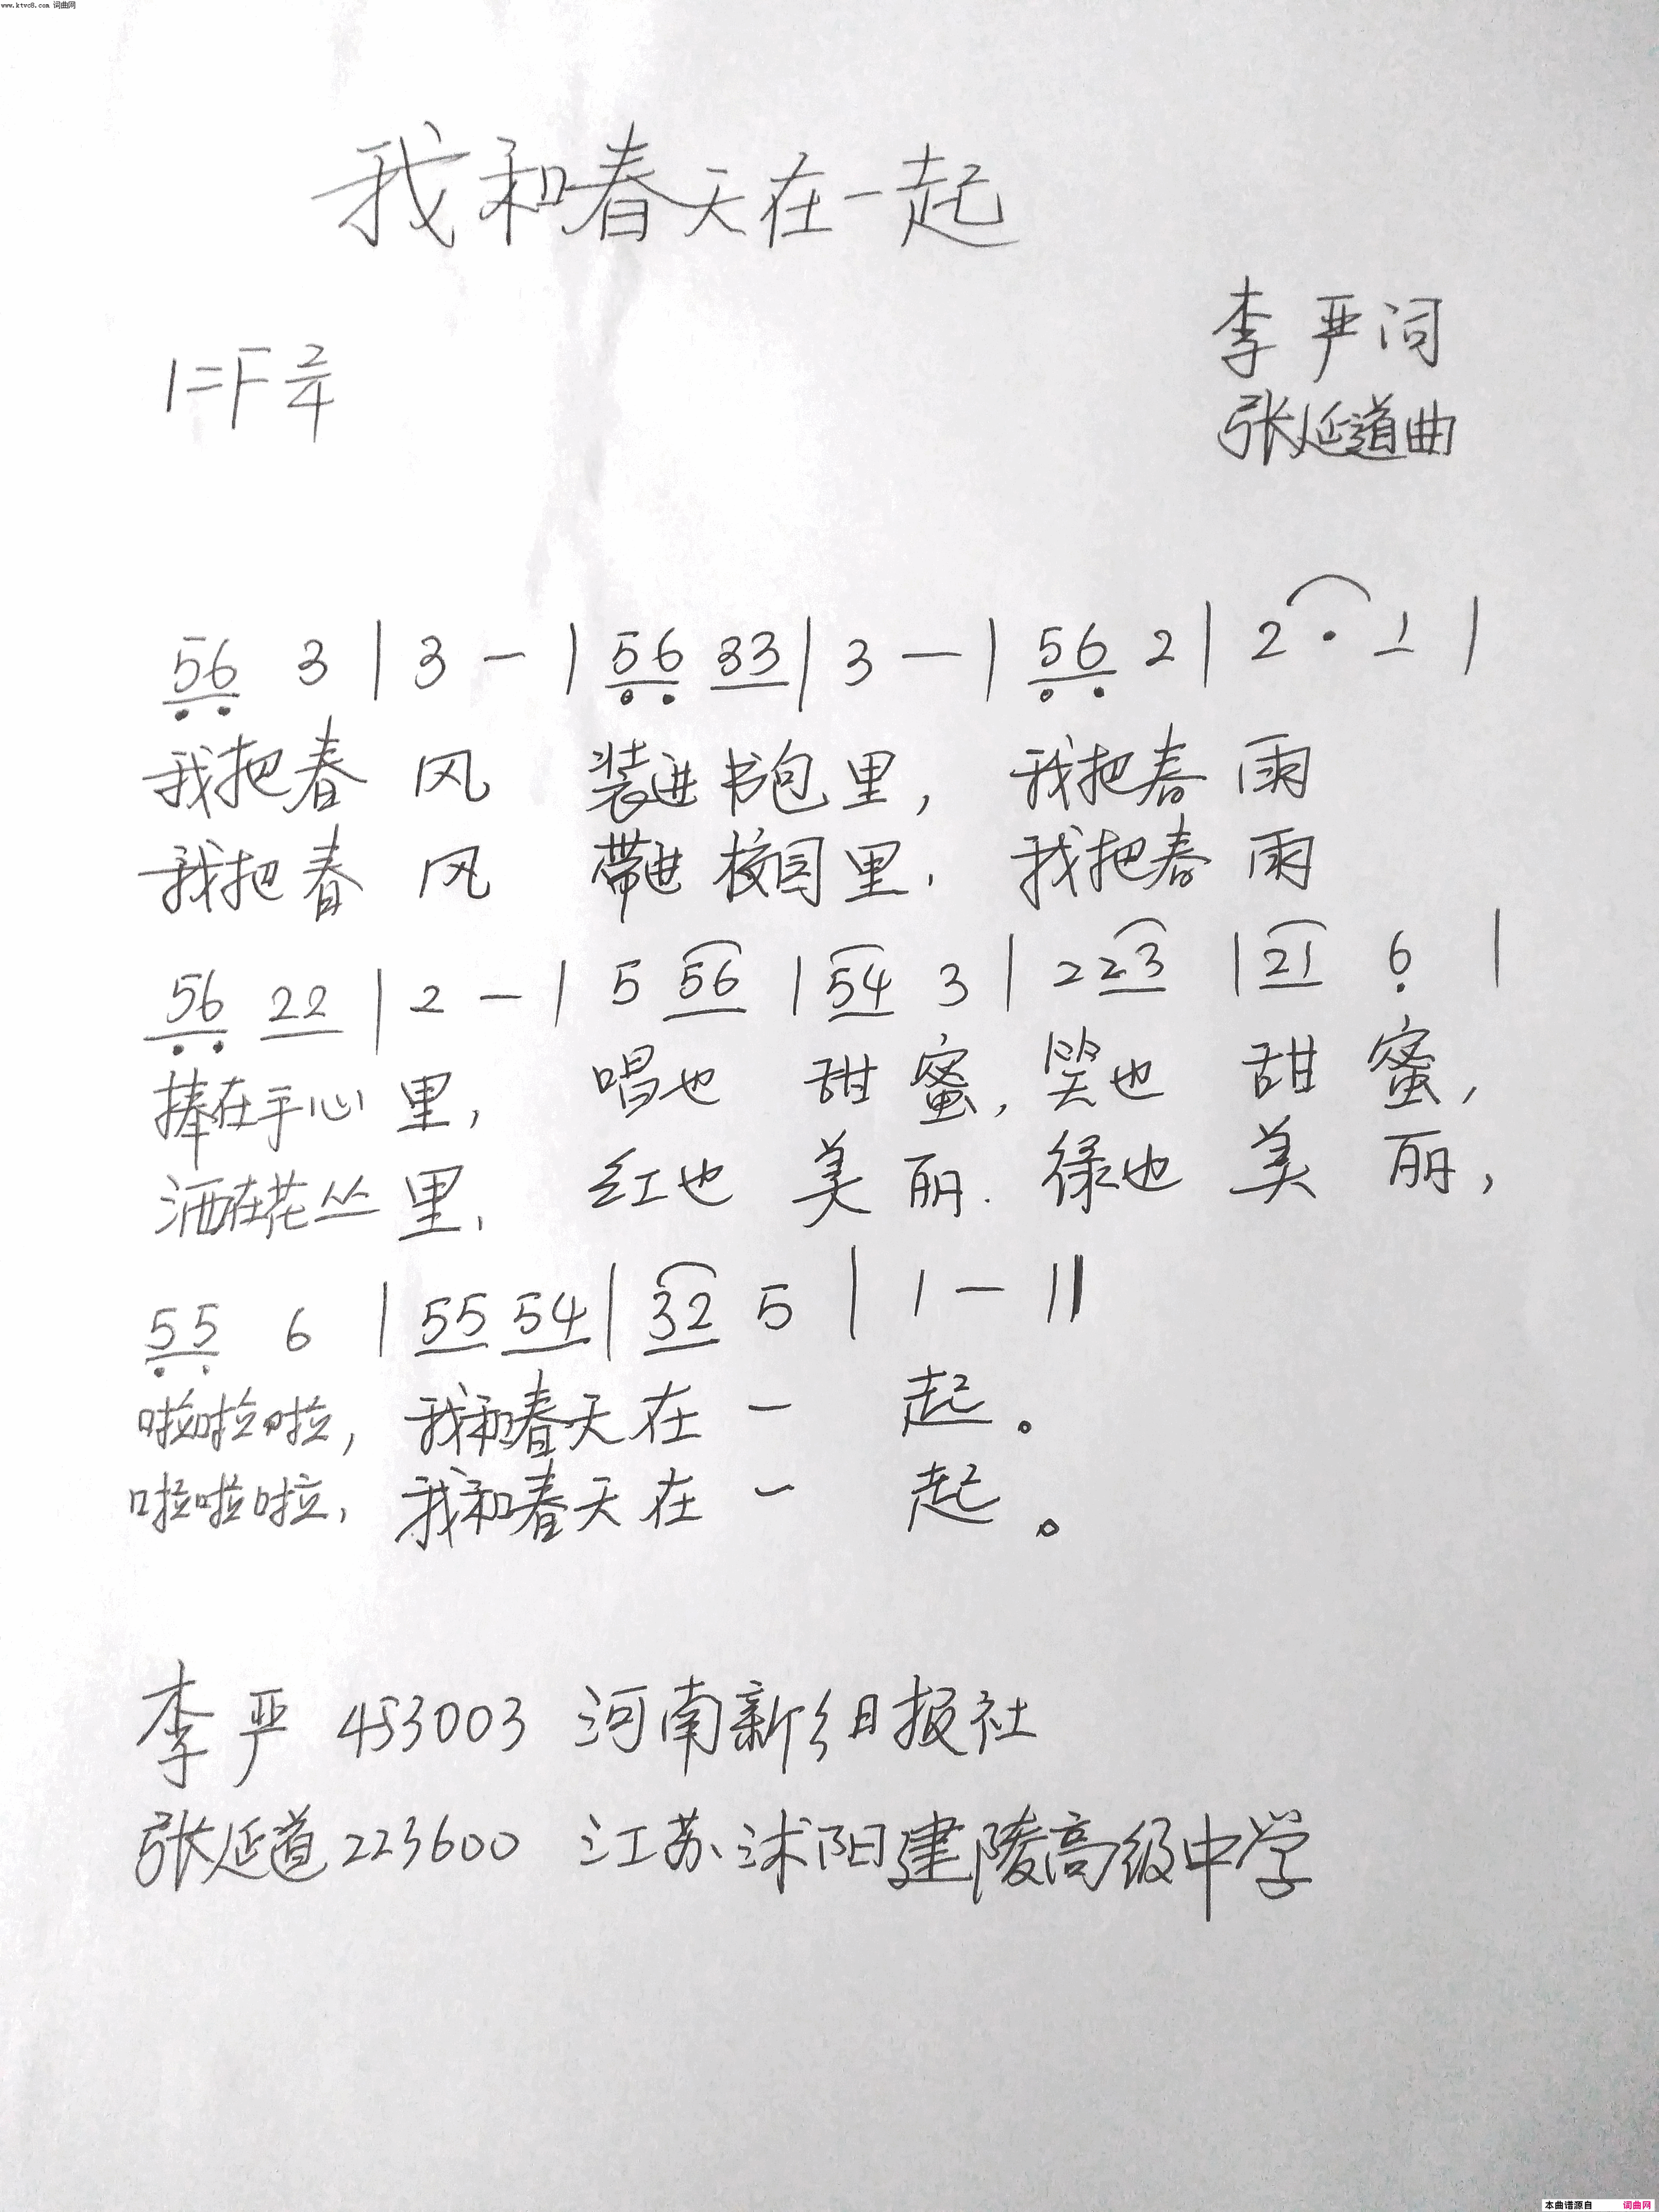 www.ktvc8.com 词曲网
我和春天在一起
李严词
1=F 2/4
张延道曲
56 3 | 3 — | 56 33 | 3 — | 56 2 | 2 · 1 |
我把春 风 装进书包里, 我把春 雨
我把春 风 带进校园里. 我把春 雨
56 22 | 2 — | 5 56 | 54 3 | 2 23 | 21 6 |
捧在手心里, 唱也 甜蜜, 笑也 甜蜜,
洒在花丛里, 红也 美丽. 绿也 美丽,
55 6 | 55 54 | 32 5 | 1 — ||
啦啦啦, 我和春天在 一 起。
啦啦啦, 我和春天在 一 起。
李严 453003 河南新乡日报社
张延道 223600 江苏沭阳建陵高级中学
本曲谱源自 词曲网